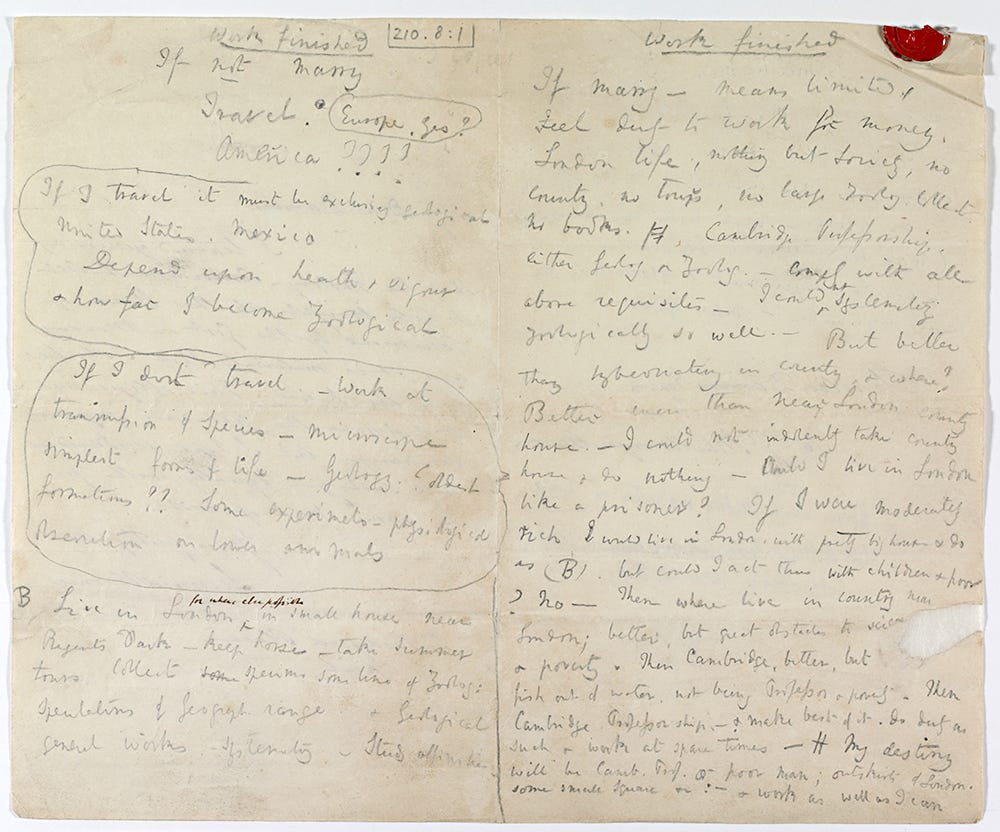 Work finished
210.8:1
If not marry
Travel. Europe, yes?
America ????
If I travel it must be exclusively geological
United States, Mexico
Depend upon health & vigour
& how far I become Zoological
If I dont travel — Work at
transmission of Species — microscope
simplest forms of life — Geology. ? oldest
formations ?? Some experiments — physiological
observation on lower animals
B Live in London for where else possible in small house near
Regents Park — keep horse — take Summer
tours Collect some specimens some line of Zoolog:
Speculations of Geograph. range & Geological
general works — Systematiz — Study affinities
Work finished
If marry — means limited,
Feel duty to work for money.
London life, nothing but Society, no
country, no tours, no large Zoolog. Collect.
no books. Cambridge Professorship,
either Geolog. or Zoolog. — comply with all
above requisites — I could not systematiz
zoologically so well. — But better
than hybernating in country, & where?
Better even than near London country
house. — I could not indolently take country
house & do nothing — Could I live in London
like a prisoner? If I were moderately
rich I would live in London, with pretty big house & do
as (B), but could I act thus with children & poor
? No — Then where live in country near
London; better, but great obstacles to
& poverty. Then Cambridge, better, but
fish out of water, not being Professor & poverty. Then
Cambridge Professorship, — & make best of it. Do duty as
such & work at spare times — My destiny
will be Camb. Prof. or poor man; outskirts of London.
some small Square &c: — & work as well as I can